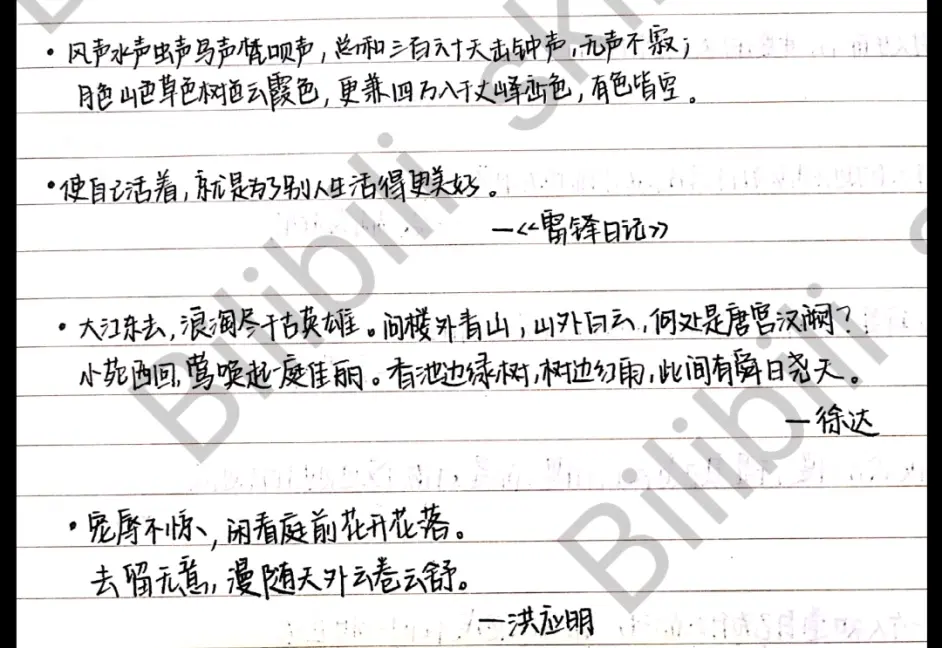 ·风声水声虫声鸟声梵呗声，总和三百六十天击钟声，无声不寂；
月色山色草色树色云霞色，更兼四万八千丈峰峦色，有色皆空。
·使自己活着，就是为了别人生活得更美好。
—《雷锋日记》
·大江东去，浪淘尽千古英雄。问楼外青山，山外白云，何处是唐宫汉阙？
小苑西回，莺唤起一庭佳丽。看池边绿树，树边红雨，此间有舜日尧天。
—徐达
·宠辱不惊，闲看庭前花开花落。
去留无意，漫随天外云卷云舒。
—洪应明
Bilibili
Bilibili